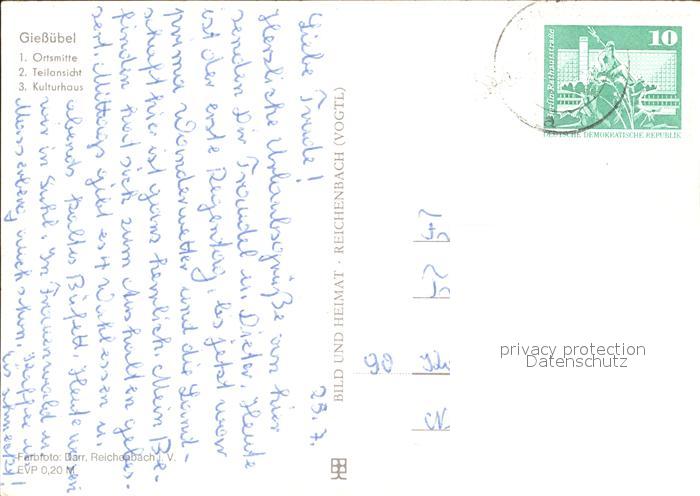 Gießübel
1. Ortsmitte
2. Teilansicht
3. Kulturhaus
23. 7.
Liebe Traudl!
Herzliche Urlaubsgrüße von hier
senden Dir Traudel u. Dieter. Heute
ist der erste Regentag, bis jetzt war
prima Wanderwetter und die Land-
schaft hier ist ganz herrlich. Mein Be-
finden hat sich zum Aushalten gebes-
sert. Mittags gibt es 4 Wahlessen u.
abends kaltes Büfett. Heute waren
wir in Suhl. In Frauenwald u.
Masserberg auch schon.
es schmeckt!
Farbfoto: Darr, Reichenbach i. V.
EVP 0,20 M
BILD UND HEIMAT · REICHENBACH (VOGTL)
10
Berlin-Rathausstraße
DEUTSCHE DEMOKRATISCHE REPUBLIK
90
privacy protection
Datenschutz